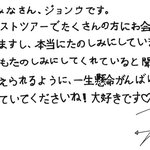 みなさん、ジョンウです。
ストツアーでたくさんの方にお会
ますし、本当にたのしみにしてい
もたのしみにしてくれていると聞
えられるように、一生懸命がんばり
ていてくださいね!大好きです♡